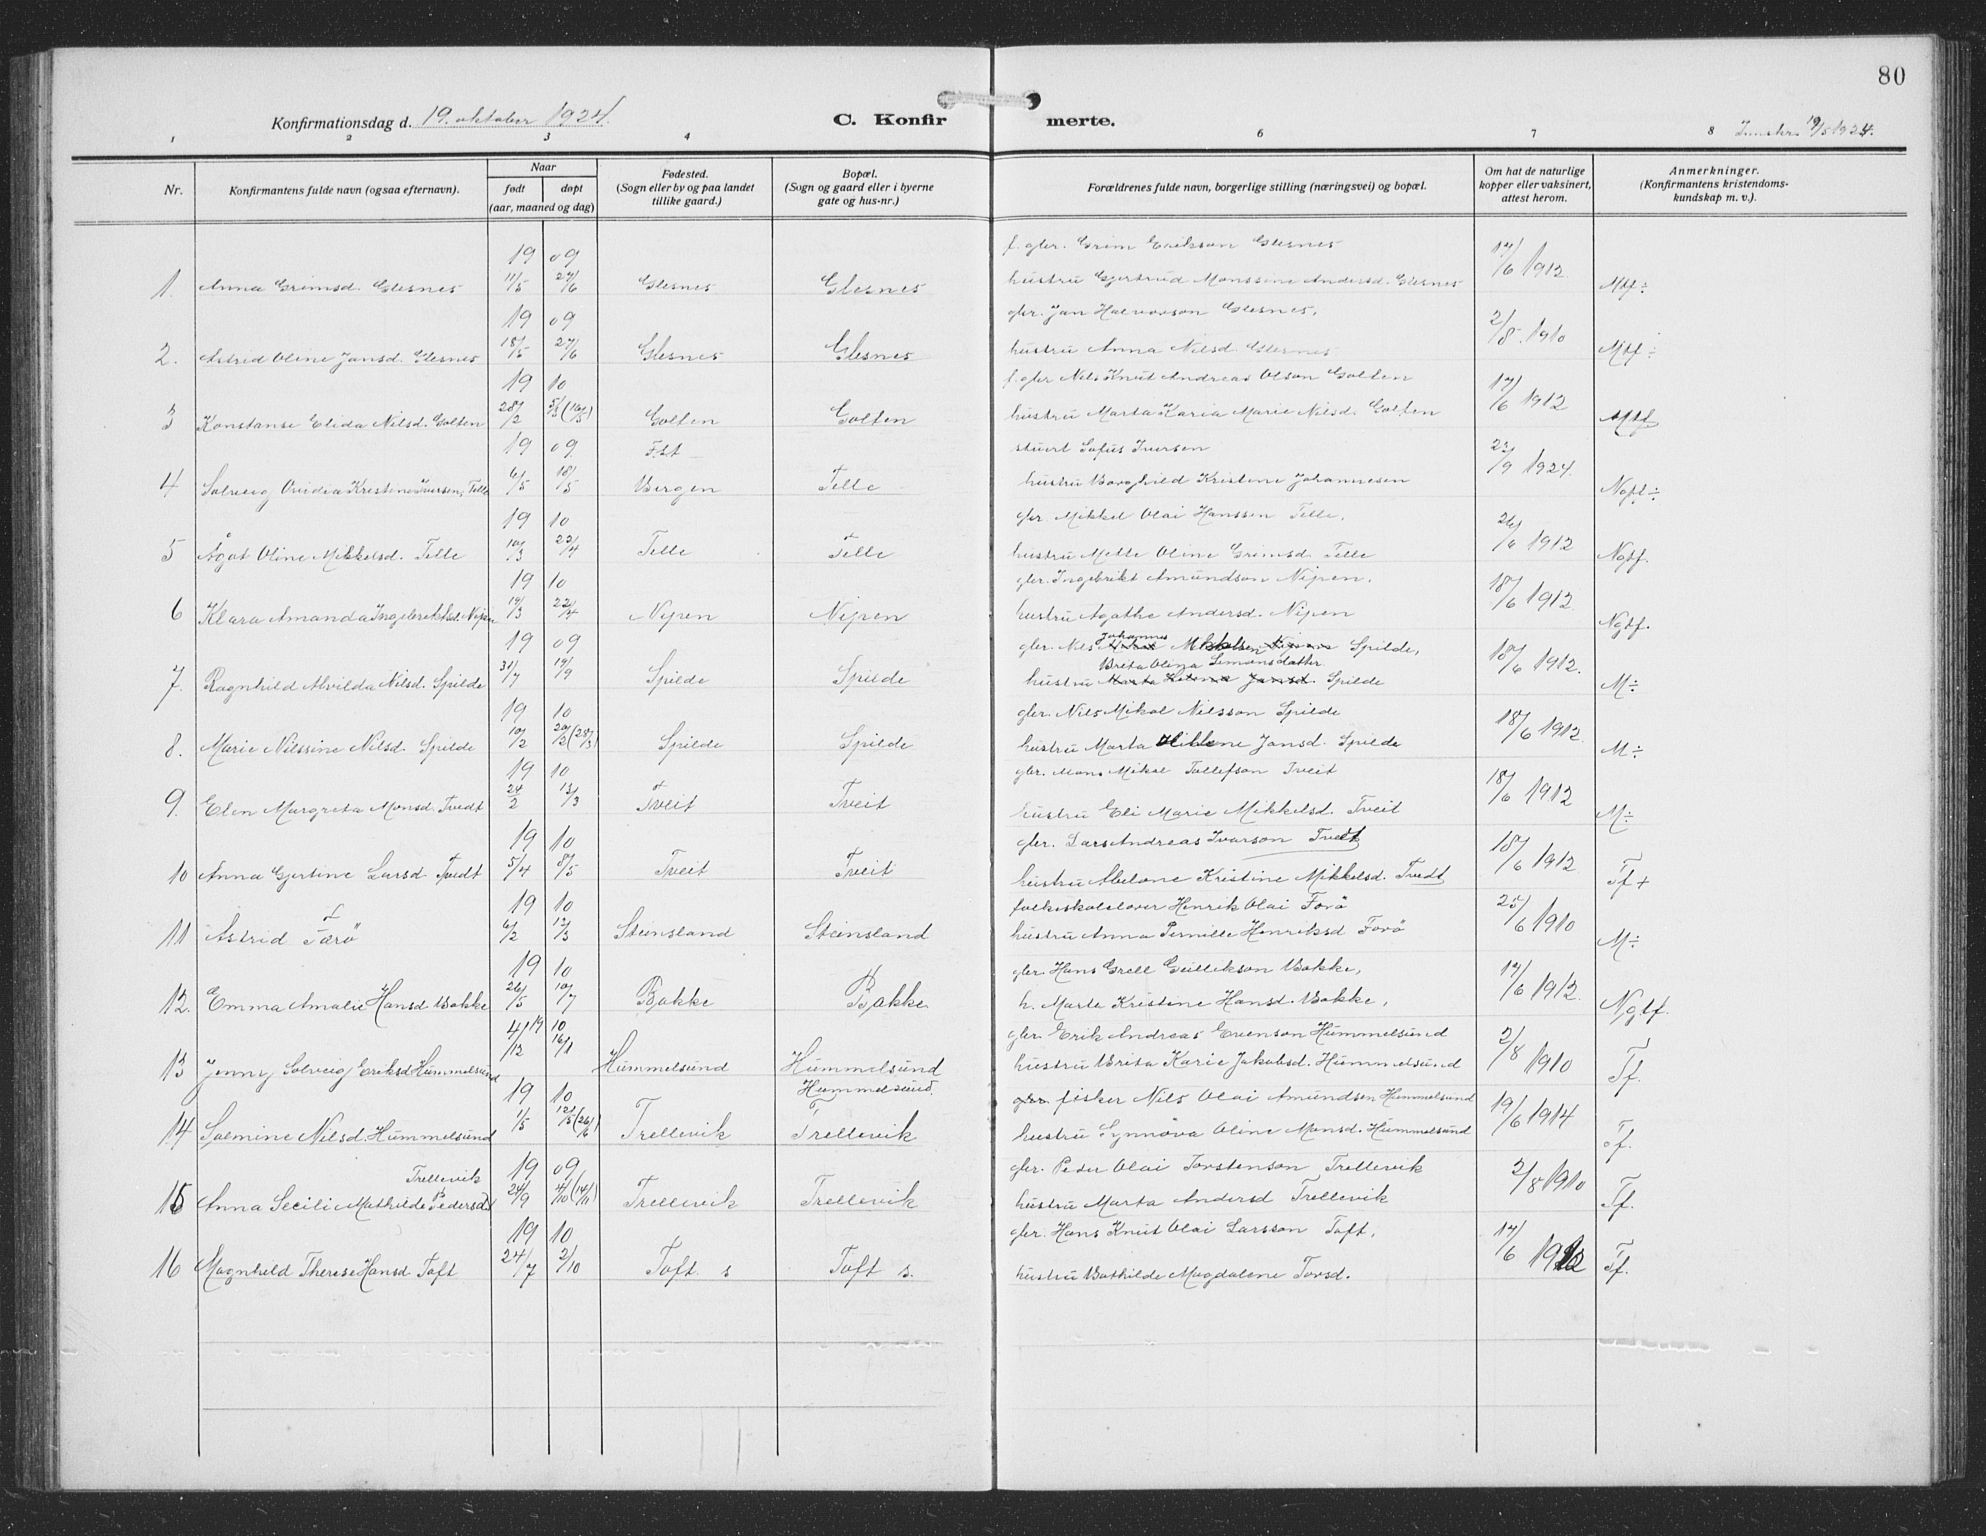 80
Konfirmationsdag d. 19. oktober 1924.
C. Konfirmerte.
19/5 1924.
1 2 3 4 6 7 8
Nr. Konfirmantens fulde navn (ogsaa efternavn). Naar født døpt (aar, maaned og dag) Fødested. (Sogn eller by og paa landet tillike gaard.) Bopæl. (Sogn og gaard eller i byerne gate og hus-nr.) Forældrenes fulde navn, borgerlige stilling (næringsvei) og bopæl. Om hat de naturlige kopper eller vaksinert, attest herom. Anmerkninger. (Konfirmantens kristendoms-kundskap m. v.).
19 09 f. gbr. Grim Erikson Glesnes
1. Anna Grimsd. Glesnes 11/5 27/6 Glesnes Glesnes hustru Gjertrud Monssine Andersd. Glesnes 17/6 1912 Mtf÷
19 09 gbr. Jan Halvorson Glesnes,
2. Astrid Oline Jansd. Glesnes 18/5 27/6 Glesnes Glesnes hustru Anna Nilsd. Glesnes 2/8. 1910 Mtf÷
19 10 f. gbr Nils Knut Andreas Olson Golten
3 Konstanse Elida Nilsd. Golten 28/2 5/3 (16/5) Golten Golten hustru Marta Karia Marie Nilsd. Golten 17/6 1912 Mtf
19 09 stuert Sofus Iversen
4 Solveig Ovidia Kristine Iversen, Telle 6/5 18/5 Bergen Telle hustru Borghild Kristine Johannesen 23/9 1924. Ngt÷
19 10 gbr. Mikkel Olai Hanssen Telle,
5 Ågot Oline Mikkelsd. Telle 10/3 22/4 Telle Telle hustru Mette Oline Grimsd. Telle 26/6 1912 Ngtf.
19 10 gbr. Ingebrikt Amundson Nipen,
6 Klara Amanda Ingebriktsd. Nipen 19/3 22/4 Nipen Nipen hustru Agathe Andersd. Nipen 18/6 1912 Ngtf.
19 09 gbr. Nils Johannes Mikkelsen Spilde,
Brita Olina Simonsdatter
7. Ragnhild Alvilda Nilsd. Spilde 31/7 19/9 Spilde Spilde hustru Marta Helena Jansd. Spilde 18/6 1912. M÷
19 10 gbr. Nils Mikal Nilsson Spilde
8. Marie Nilssine Nilsd. Spilde 10/2 20/2 (28/3) Spilde Spilde hustru Marta Jansd. Spilde 18/6 1912. M÷
19 10 gbr. Mons Mikal Tollefson Tveit
9. Elen Margreta Monsd. Tvedt 24/2 13/3 Tveit Tveit hustru Eli Marie Mikkelsd. Tveit 18/6 1912 M÷
19 10 gbr. Lars Andreas Ivarson Tvedt
10 Anna Gjertine Larsd. Tvedt 5/4 8/5 Tveit Tveit hustru Abelone Kristine Mikkelsd. Tvedt 18/6 1912 Tf+
19 10 folkeskolelærer Henrik Olai Forö
11 Astrid Færö 6/2 12/3 Steinsland Steinsland hustru Anna Pernille Henriksd Forö 25/6 1910 M÷
19 10 gbr. Hans Grell Gullikson Bakke,
12. Emma Amalie Hansd Bakke 26/5 10/7 Bakke Bakke h. Marte Kristine Hansd. Bakke, 17/6 1912. Ngtf.
19 10 gbr. Erik Andreas Evenson Hummelsund
13 Jenny Solveig Eriksd Hummelsund 4/12 16/1 Hummelsund Hummelsund hustru Brita Karie Jakobsd. Hummelsund 2/8 1910 Tf.
Hummelsund.
19 10 gbr. fisker Nils Olai Amundsen Hummelsund
14 Solmine Nilsd. Hummelsund 1/5 12/5 (26/6) Trellevik Trellevik hustru Synnöva Oline Monsd. Hummelsund 19/6 1914 Tf.
Trellevik 19 09 gbr. Peder Olai Torstenson Trellevik
15 Anna Secili Mathilde Pedersd. 24/9 4/10 (14/11) Trellevik Trellevik hustru Marta Andersd Trellevik 2/8 1910 Tf.
19 10 gbr. Hans Knut Olai Larsson Toft,
16 Magnhild Therese Hansd Toft 24/7 2/10 Toft s Toft s. hustru Bathilde Magdalene Torsd. 17/6 1912 Tf.